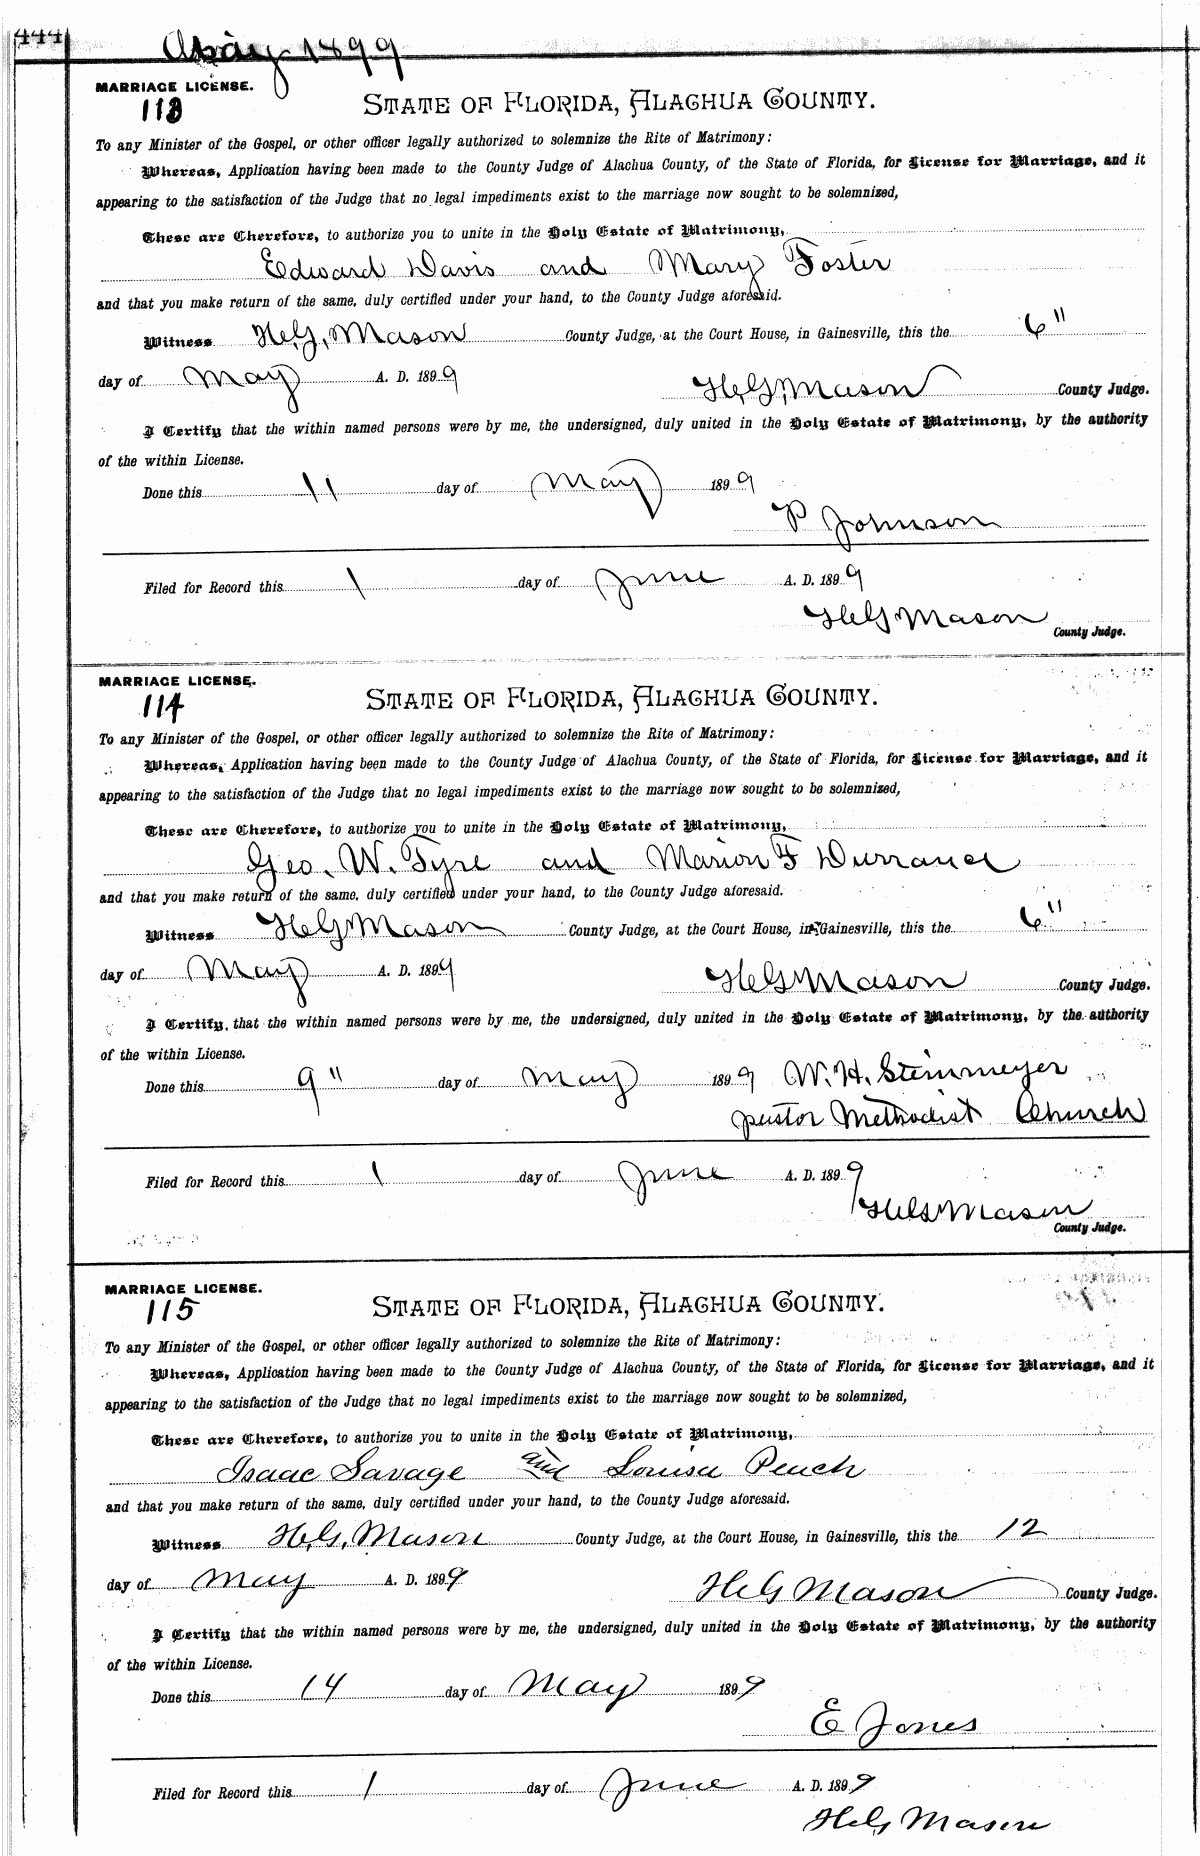 444
May 1899
MARRIAGE LICENSE.
113
STATE OF FLORIDA, ALACHUA COUNTY.
To any Minister of the Gospel, or other officer legally authorized to solemnize the Rite of Matrimony:
Whereas, Application having been made to the County Judge of Alachua County, of the State of Florida, for License for Marriage, and it
appearing to the satisfaction of the Judge that no legal impediments exist to the marriage now sought to be solemnized,
These are Cherefore, to authorize you to unite in the Holy Estate of Matrimony,
Edward Davis and Mary Foster
and that you make return of the same, duly certified under your hand, to the County Judge aforesaid.
Witness H.G. Mason County Judge, at the Court House, in Gainesville, this the 6"
day of May A. D. 1899 H.G. Mason County Judge.
I Certify that the within named persons were by me, the undersigned, duly united in the Holy Estate of Matrimony, by the authority
of the within License.
Done this 11 day of May 1899
P Johnson
Filed for Record this 1 day of June A. D. 1899
H G Mason
County Judge.
MARRIAGE LICENSE.
114
STATE OF FLORIDA, ALACHUA COUNTY.
To any Minister of the Gospel, or other officer legally authorized to solemnize the Rite of Matrimony:
Whereas, Application having been made to the County Judge of Alachua County, of the State of Florida, for License for Marriage, and it
appearing to the satisfaction of the Judge that no legal impediments exist to the marriage now sought to be solemnized,
These are Cherefore, to authorize you to unite in the Holy Estate of Matrimony,
Geo. W. Tyre and Marion F Durrance
and that you make return of the same, duly certified under your hand, to the County Judge aforesaid.
Witness H G Mason County Judge, at the Court House, in Gainesville, this the 6"
day of May A. D. 1899 H G Mason County Judge.
I Certify, that the within named persons were by me, the undersigned, duly united in the Holy Estate of Matrimony, by the authority
of the within License.
Done this 9" day of May 1899 W. H. Steinmeyer
pastor Methodist Church
Filed for Record this 1 day of June A. D. 1899
H G Mason
County Judge.
MARRIAGE LICENSE.
115
STATE OF FLORIDA, ALACHUA COUNTY.
To any Minister of the Gospel, or other officer legally authorized to solemnize the Rite of Matrimony:
Whereas, Application having been made to the County Judge of Alachua County, of the State of Florida, for License for Marriage, and it
appearing to the satisfaction of the Judge that no legal impediments exist to the marriage now sought to be solemnized,
These are Cherefore, to authorize you to unite in the Holy Estate of Matrimony,
Isaac Savage and Louisa Peach
and that you make return of the same, duly certified under your hand, to the County Judge aforesaid.
Witness H.G. Mason County Judge, at the Court House, in Gainesville, this the 12
day of May A. D. 1899 H G Mason County Judge.
I Certify that the within named persons were by me, the undersigned, duly united in the Holy Estate of Matrimony, by the authority
of the within License.
Done this 14 day of May 1899
E Jones
Filed for Record this 1 day of June A. D. 1899
H G Mason